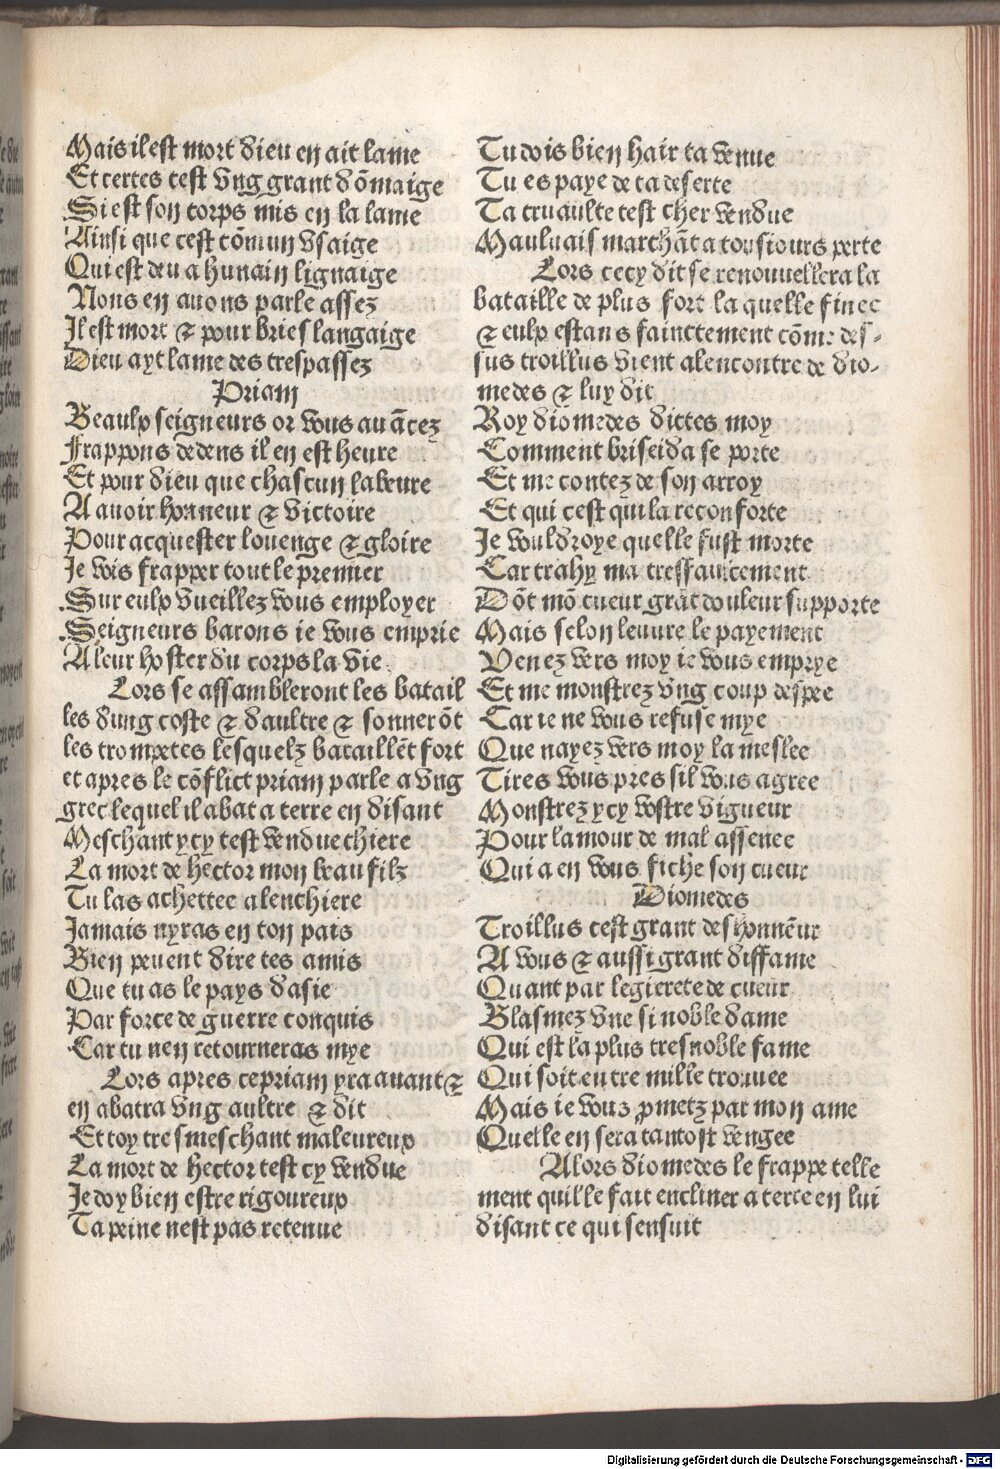 Mais il est mort dieu en ait lame
Et certes cest vng grant dõmaige
Si est son corps mis en la lame
Ainsi que cest cõmun vsaige
Qui est deu a hunain lignaige
Nous en auons parle assez
Il est mort ⁊ pour brief langaige
Dieu ayt lame des trespassez
Priam
Beaulx seigneurs or vous auãcez
Frappons dedens il en est heure
Et pour dieu que chascun labeure
A auoir honneur ⁊ victoire
Pour acquester louenge ⁊ gloire
Je vois frapper tout le premier
Sur eulx vueillez vous employer
Seigneurs barons ie vous emprie
A leur hoster du corps la vie
Lors se assambleront les batail
les dung coste ⁊ daultre ⁊ sonnerõt
les trompetes lesquelz bataillẽt fort
et apres le cõflict priam parle a vng
grec lequel il abat a terre en disant
Meschant ycy test vendue chiere
La mort de hector mon beau filz
Tu las achettee a lenchiere
Jamais nyras en ton pais
Bien peuent dire tes amis
Que tu as le pays dasie
Par force de guerre conquis
Car tu nen retourneras mye
Lors apres ce priam yra auant ⁊
en abatra vng aultre ⁊ dit
Et toy tresmeschant maleureux
La mort de hector test cy vendue
Je doy bien estre rigoureux
Ta peine nest pas retenue
Tu dois bien hair ta venue
Tu es paye de ta deserte
Ta cruaulte test cher vendue
Mauluais marchãt a tousiours perte
Lors cecy dit se renouuellera la
bataille de plus fort la quelle finee
⁊ eulx estans fainctement cõme des-
sus troillus vient alencontre de dio-
medes ⁊ luy dit
Roy diomedes dictes moy
Comment briseida se porte
Et me contez de son arroy
Et qui cest qui la reconforte
Je vouldroye quelle fust morte
Car trahy ma tresfaulcement
Dõt mõ cueur grãt douleur supporte
Mais selon leuure le payement
Venez vers moy ie vous emprye
Et me monstrez vng coup despee
Car ie ne vous refuse mye
Que nayez vers moy la meslee
Tires vous pres sil vous agree
Monstrez ycy vostre vigueur
Pour lamour de mal assenee
Qui a en vous fiche son cueur
Diomedes
Troillus cest grant deshonnẽur
A vous ⁊ aussi grant diffame
Quant par legierete de cueur
Blasmez vne si noble dame
Qui est la plus tresnoble fame
Qui soit entre mille trouuee
Mais ie vous ꝓmetz par mon ame
Quelle en sera tantost vengee
Alors diomedes le frappe telle
ment quil le fait encliner a terre en lui
disant ce qui sensuit
Digitalisierung gefördert durch die Deutsche Forschungsgemeinschaft - DFG